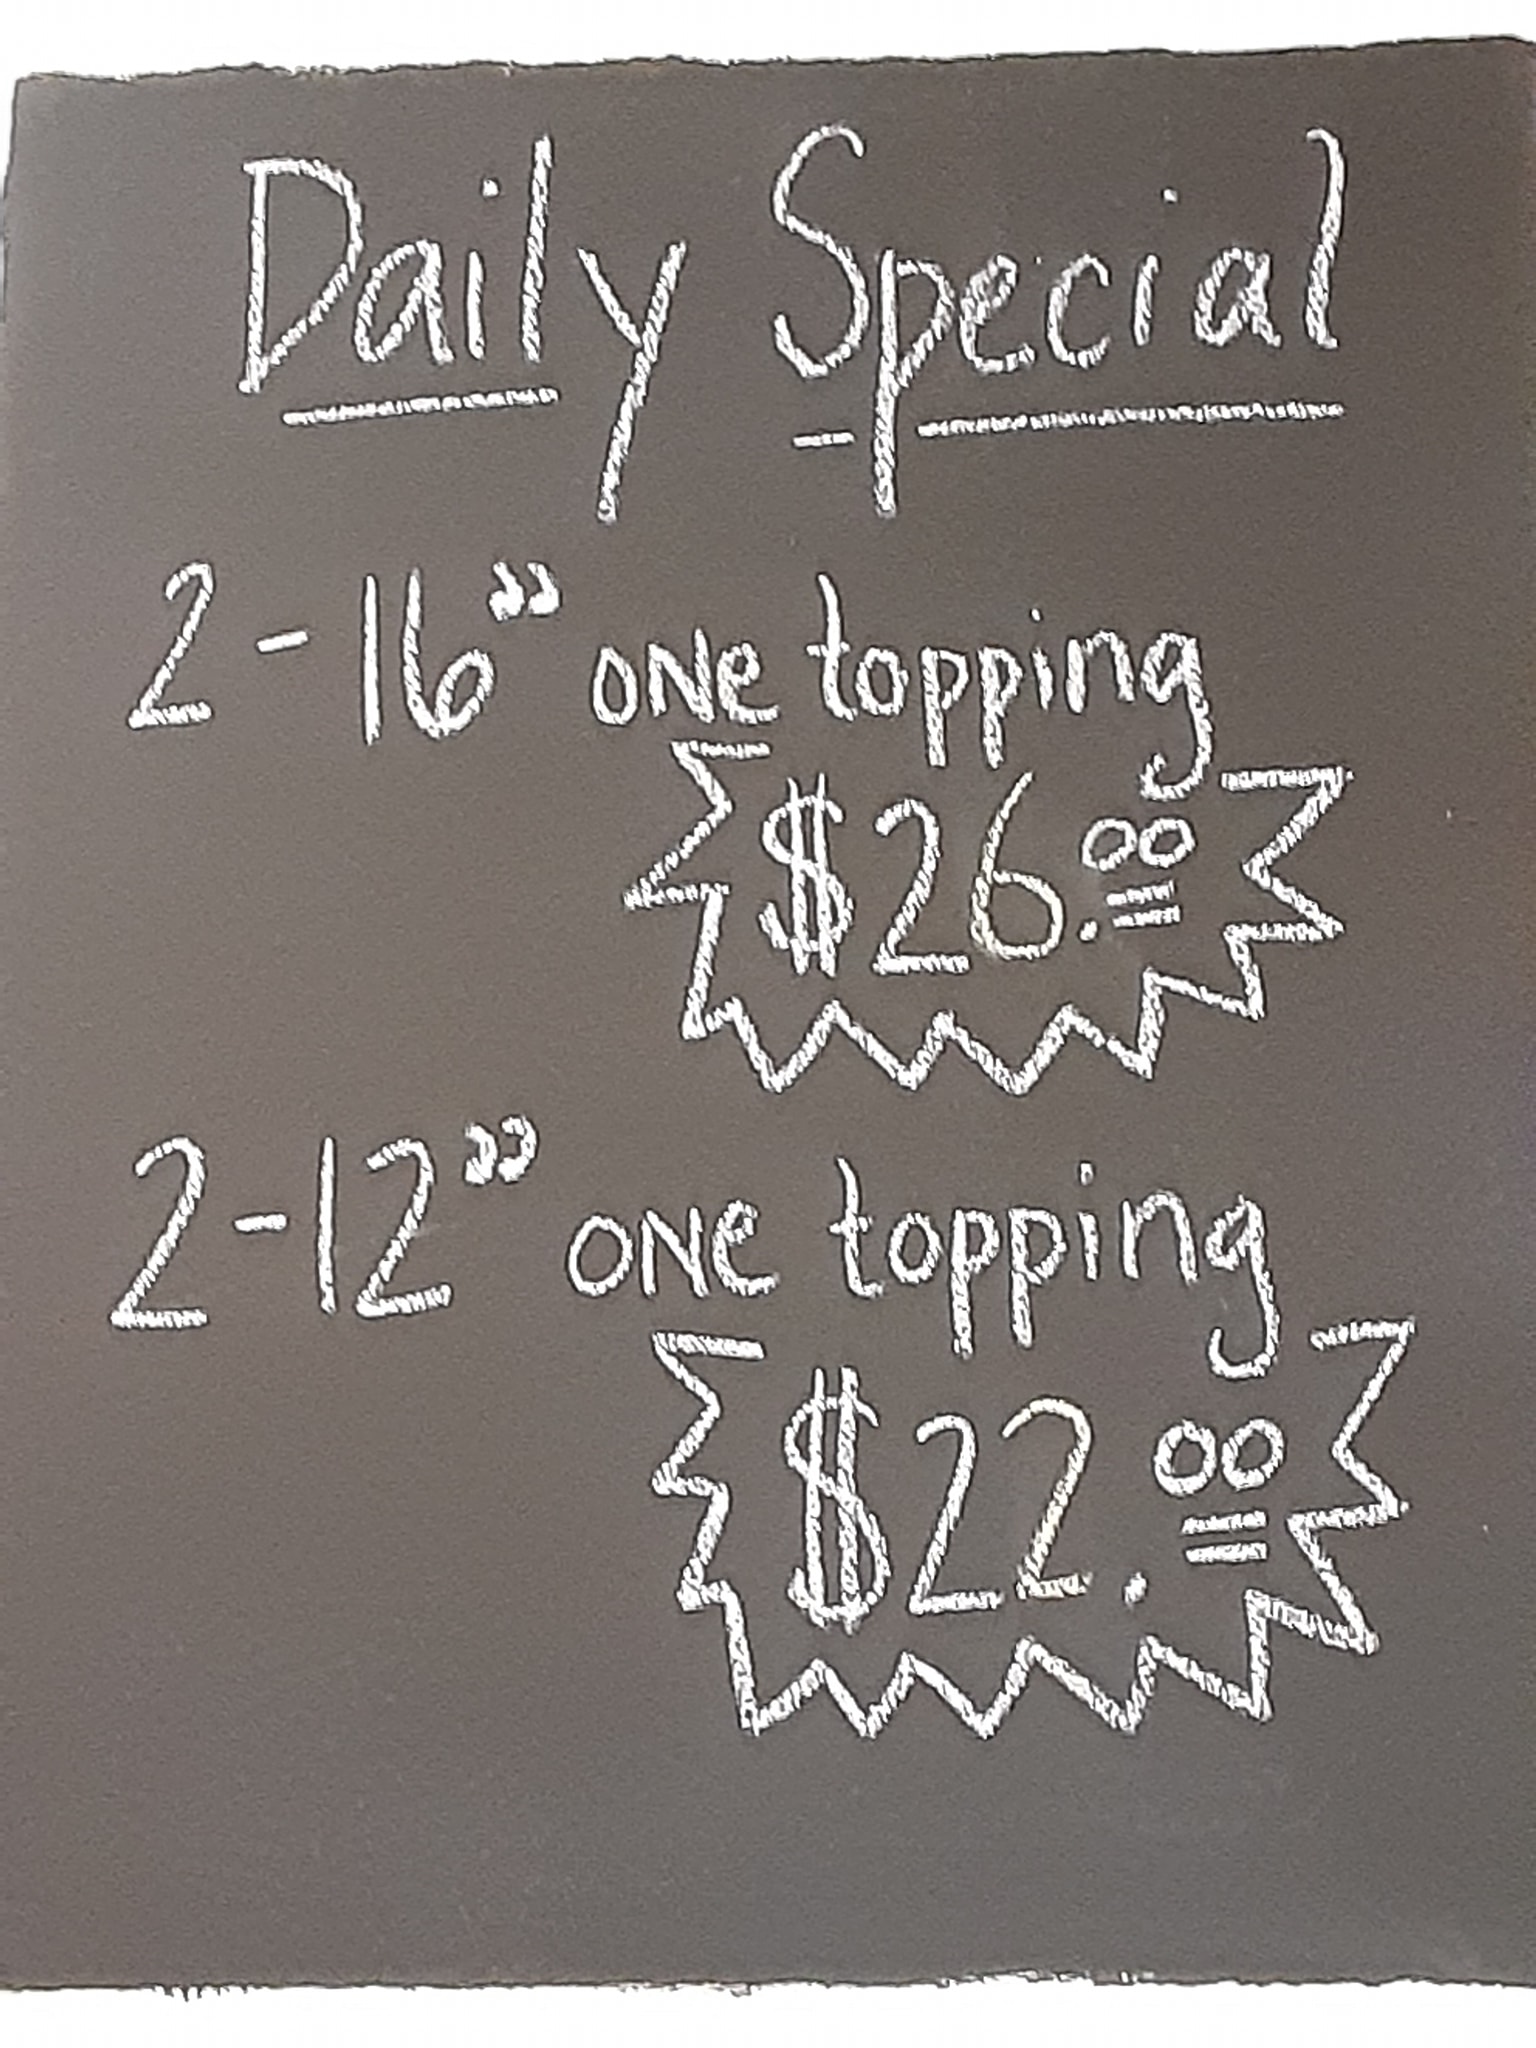 Daily Special
2-16" one topping
$26.00
2-12" one topping
$22.00